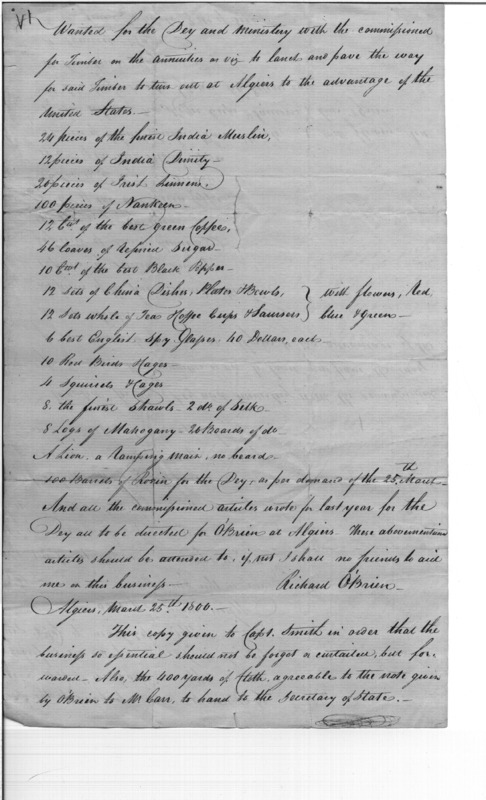 VI
Wanted for the Dey and ministery with the commissioned
for Timber on the annuities or viz to land and pave the way
for said Timber to turn out at Algiers to the advantage of the
United States.—
24 pieces of the finest India Muslin,
12 pieces of India Dimity—
20 pieces of Irish Linnens.
100 pieces of Nankeen—
12 Cwt of the best green Coffee,
46 loaves of refined Sugar
10 Cwt of the best Black Pepper—
12 Sets of China Dishes, Plates & Bowls, } with flowers, Red
12 Sets whole of Tea & Coffee Cups & Saussers } blue & Green—
6 best English Spy Glasses 40 Dollars, each
10 Red Birds & Cages—
4 Squirrels & Cages
8. the finest Shawls— 2 do. of Silk—
8 Logs of Mahogany— 20 Boards of do
A Lion, a Ramping main, no beard—
100 Barrels of Rosin for the Dey, as per demand of the 25th March
And all the commissioned articles wrote for last year for the
Dey all to be directed for O'Brien at Algiers. These abovemention
articles should be attended to, if not I shall no friends to aid
me on this business— Richard O'Brien—
Algiers, March 25th 1800.—
This copy given to Capt. Smith in order that the
business so essential should not be forgot or curtailed, but for-
warded— Also, the 400 yards of Cloth, agreeable to the note given
by O'Brien to Mr Carr, to hand to the Secretary of State.—